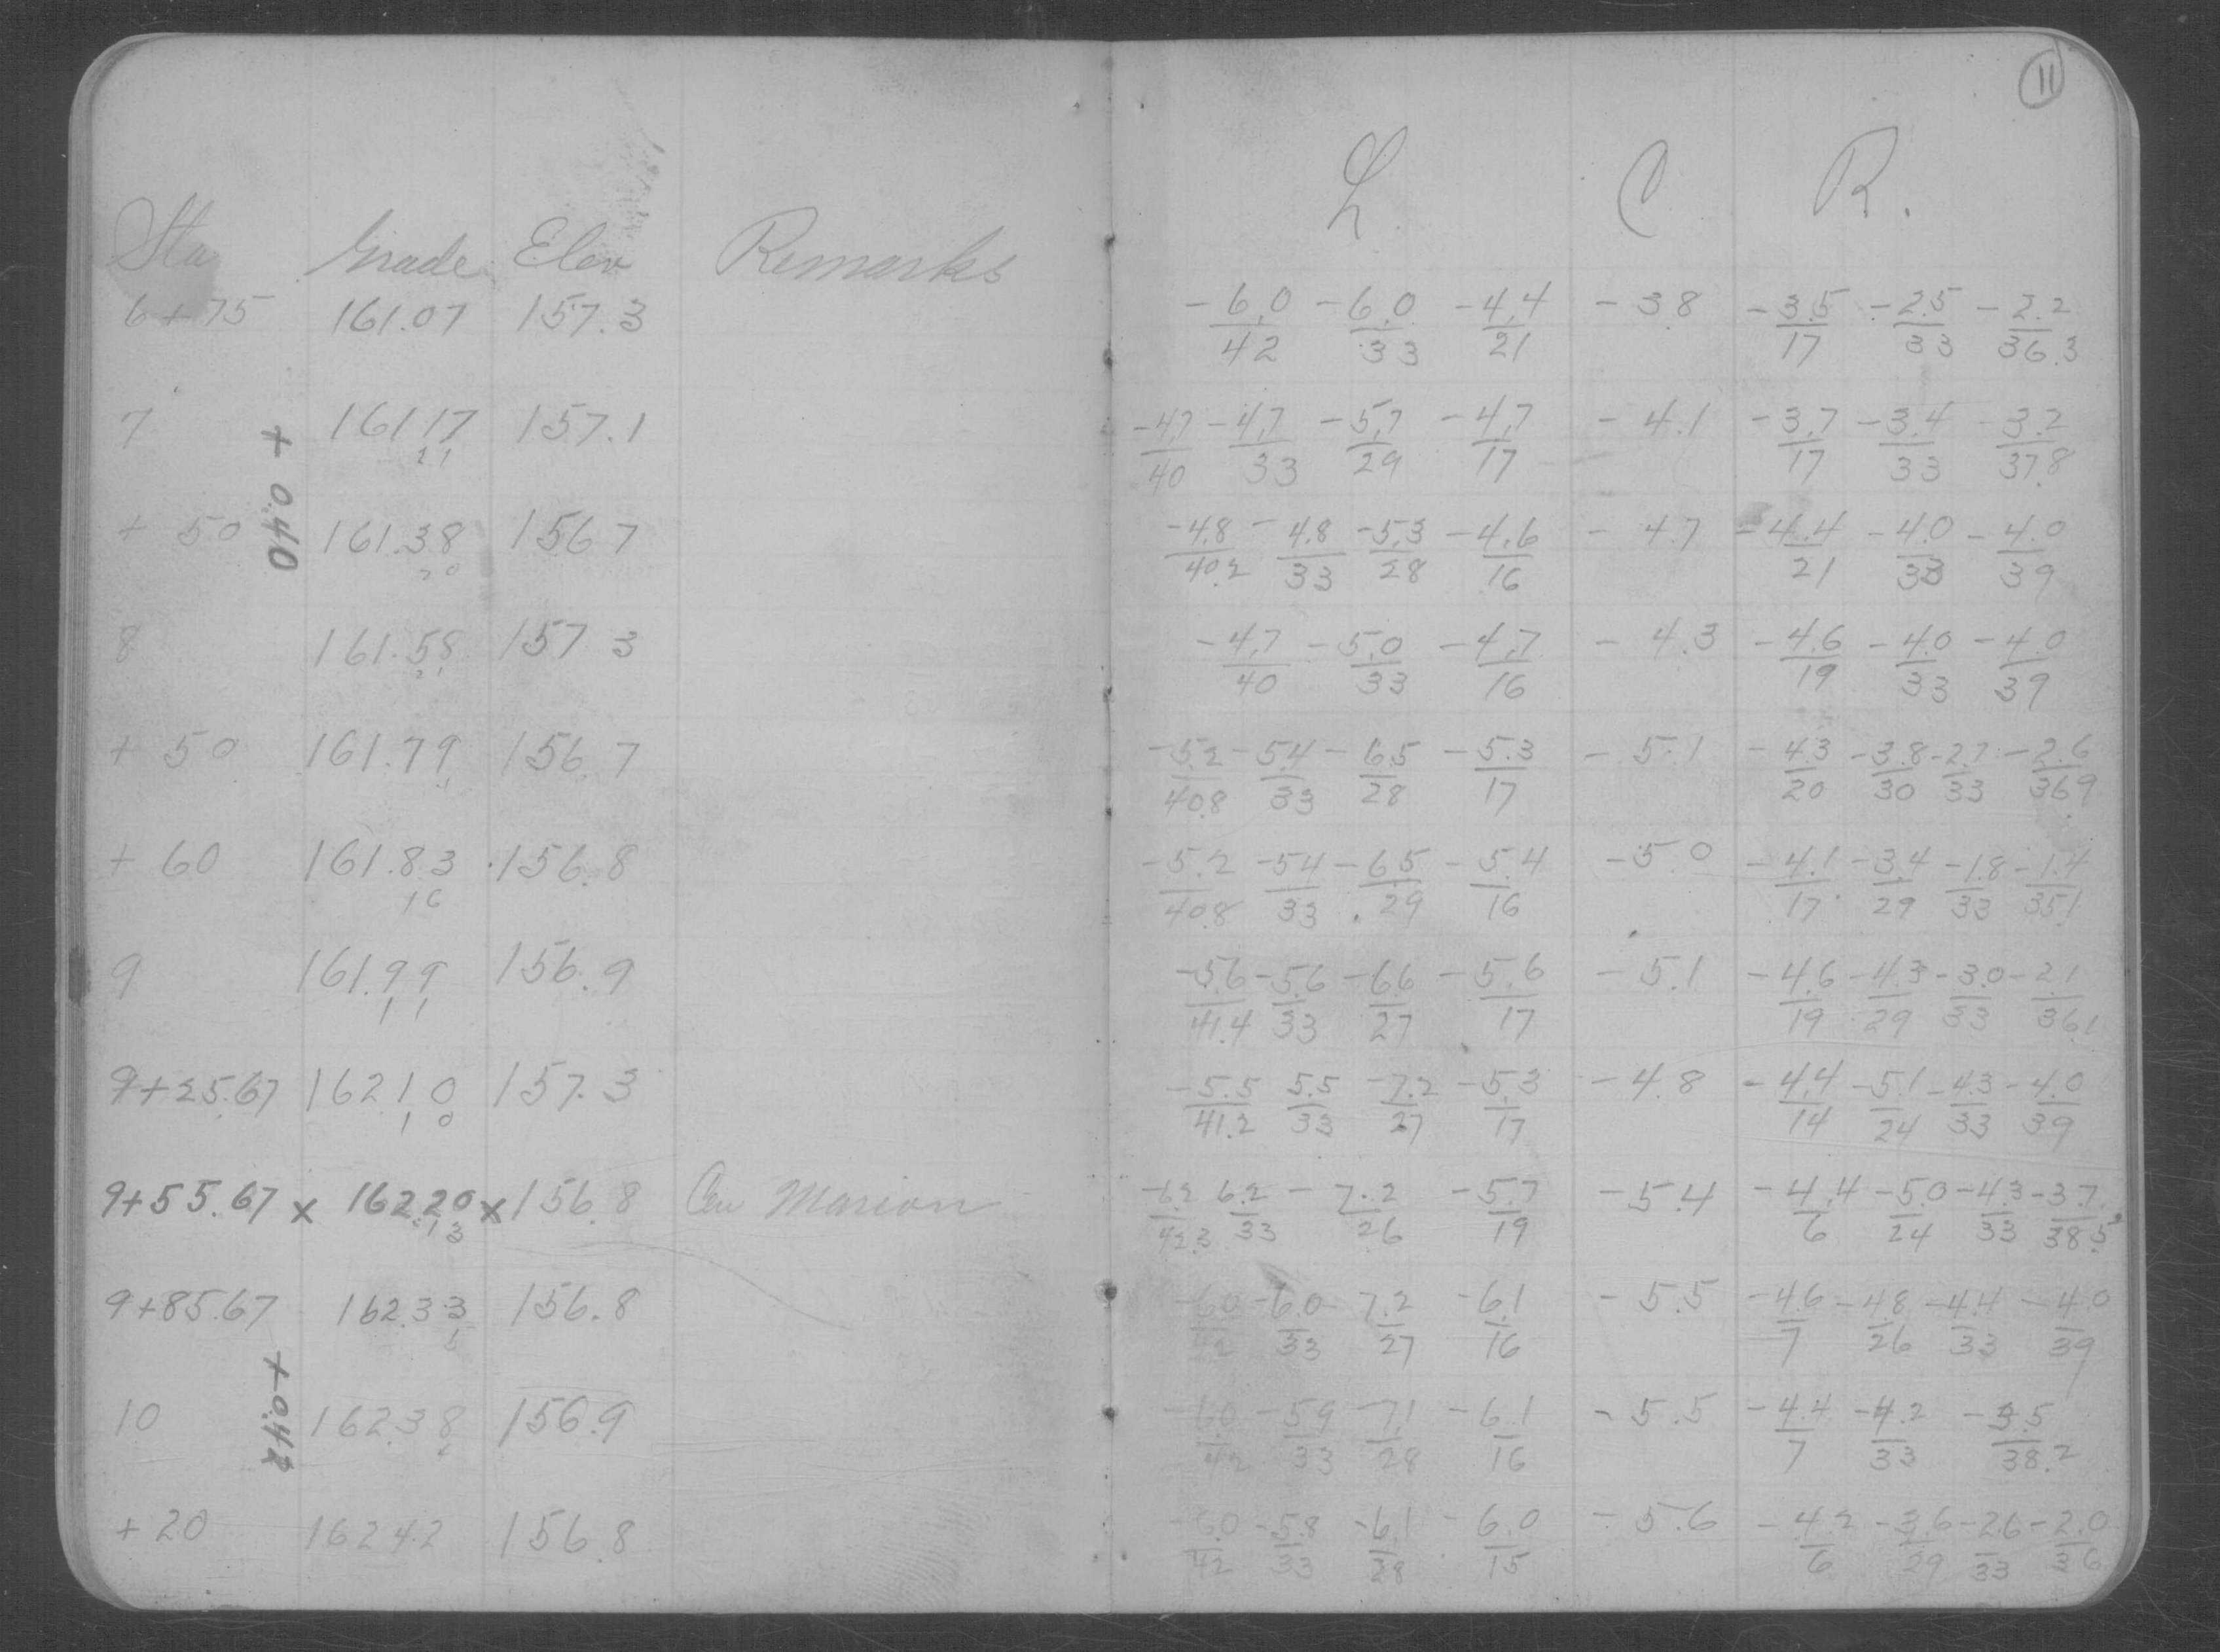 11
L. C R.
Sta Grade Elev Remarks
6+75 161.07 157.3 -6.0/42 -6.0/33 -4.4/21 -3.8 -3.5/17 -2.5/33 -2.2/36.3
7 161.17 157.1 -4.7/40 -4.7/33 -5.7/29 -4.7/17 -4.1 -3.7/17 -3.4/33 -3.2/37.8
21
+ 0.40
+ 50 161.38 156.7 -4.8/40.2 -4.8/33 -5.3/28 -4.6/16 -4.7 -4.4/21 -4.0/33 -4.0/39
20
8 161.58 157.3 -4.7/40 -5.0/33 -4.7/16 -4.3 -4.6/19 -4.0/33 -4.0/39
21
+ 50 161.79 156.7 -5.2/40.8 -5.4/33 -6.5/28 -5.3/17 -5.1 -4.3/20 -3.8/30 -2.7/33 -2.6/36.9
+ 60 161.83 156.8 -5.2/40.8 -5.4/33 -6.5/29 -5.4/16 -5.0 -4.1/17 -3.4/29 -1.8/33 -1.4/35.1
16
9 161.99 156.9 -5.6/41.4 -5.6/33 -6.6/27 -5.6/17 -5.1 -4.6/19 -4.3/29 -3.0/33 -2.1/36.1
11
9+25.67 162.10 157.3 -5.5/41.2 5.5/33 -7.2/27 -5.3/17 -4.8 -4.4/14 -5.1/24 -4.3/33 -4.0/39
10
9+55.67 x 162.20 x 156.8 Cen Marion -6.2/42.3 6.2/33 -7.2/26 -5.7/19 -5.4 -4.4/6 -5.0/24 -4.3/33 -3.7/38.5
13
9+85.67 162.33 156.8 -6.0/42 -6.0/33 -7.2/27 -6.1/16 -5.5 -4.6/7 -4.8/26 -4.4/33 -4.0/39
5
+0.42
10 162.38 156.9 -6.0/42 -5.9/33 -7.1/28 -6.1/16 -5.5 -4.4/7 -4.2/33 -3.5/38.2
+ 20 162.42 156.8 -6.0/42 -5.8/33 -6.1/28 -6.0/15 -5.6 -4.2/6 -3.6/29 -2.6/33 -2.0/36